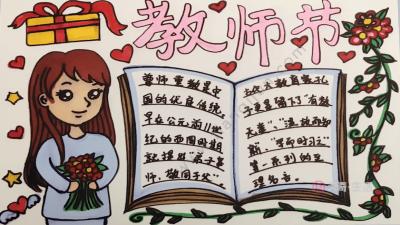 教师节
尊师重教是中
国的优良传统,
早在公元前11世
纪的西周时期
就提出"弟子事
师,敬同于父"。
古代大教育家孔
子更是留下了"有教
无类"、"温故而知
新"、"学而时习之"
等一系列的至
理名言。